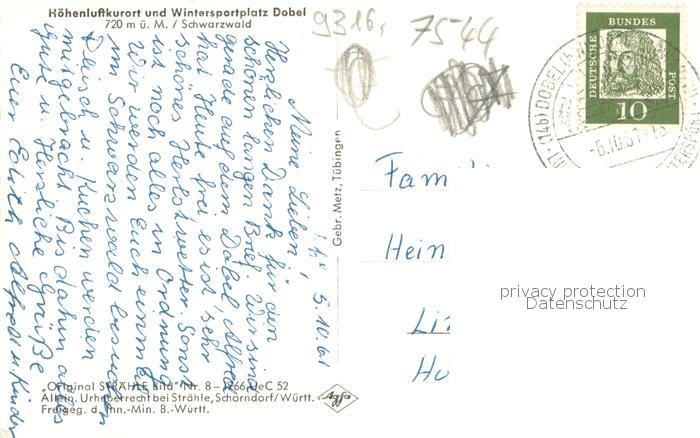 Höhenluftkurort und Wintersportplatz Dobel
720 m ü. M. / Schwarzwald
5.10.61
Meine Lieben,
Herzlichen Dank für den
schönen langen Brief. Wir sind
gerade auf dem Dobel, Alfred
hat Heute frei es ist sehr
schönes Herbstwetter. Sonst
ist noch alles in Ordnung
Wir werden Euch einmal
im Schwarzwald besuchen
Fleisch u. Kuchen werden
mitgebracht. Bis dahin alles
gute u. Herzliche Grüße
Eure Edith Alfred u. Kinder
„Original STRÄHLE Bild" Nr. 8 – 1266 UeC 52
Allein. Urheberrecht bei Strähle, Schorndorf/Württ.
Freigeg. d. Inn.-Min. B.-Württ.
Agfa
Gebr. Metz, Tübingen
9316,
7544
DEUTSCHE BUNDESPOST
10
(14b) DOBEL
-6.10.61-18
Fam
Hein
privacy protection
Datenschutz